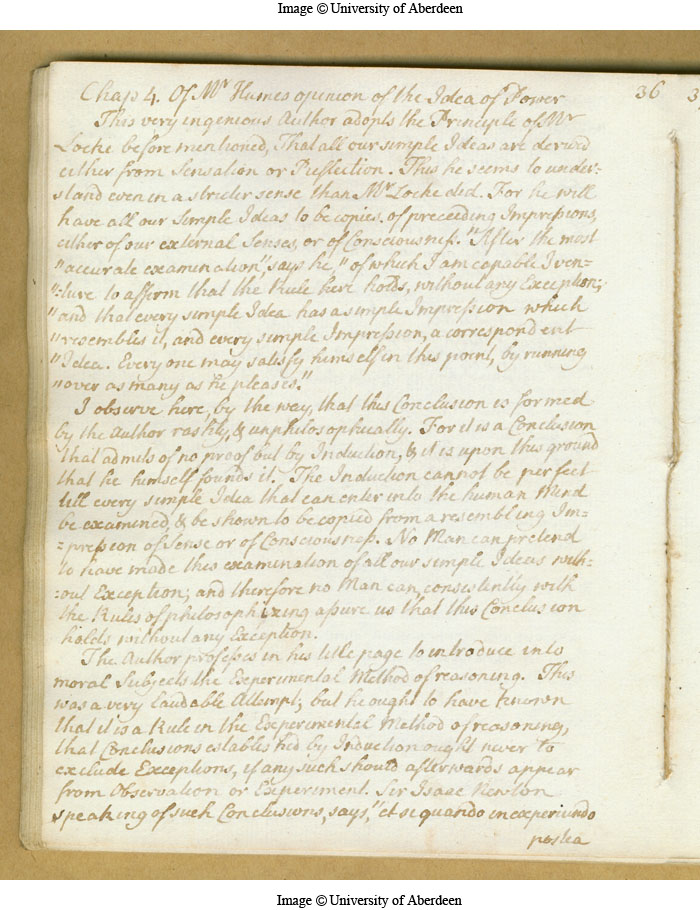 Image © University of Aberdeen
Chap 4. Of Mr Humes opinion of the Idea of Power
36
3
This very ingenious Author adopts the Principle of Mr
Locke before mentioned, That all our simple Ideas are derivd
either from Sensation or Reflection. This he seems to under-
stand even in a stricter sense than Mr Locke did. For he will
have all our Simple Ideas to be copies, of preceeding Impressions,
either of our external Senses, or of Consciousness. "After the most
"accurate examination", says he, "of which I am capable I ven=
"=ture to affirm that the Rule here holds, without any Exception;
"and that every simple Idea has a simple Impression which
"resembles it, and every simple Impression, a correspondent
"Idea. Every one may satisfy himself in this point, by running
"over as many as he pleases."
I observe here, by the way, that this Conclusion is formed
by the author rashly, & unphilosophically. For it is a Conclusion
that admits of no proof but by Induction, & it is upon this ground
that he himself founds it. The Induction cannot be perfect
till every simple Idea that can enter into the human Mind
be examined, & be shown to be copied from a resembling Im=
=pression of Sense or of Consciousness. No Man can pretend
to have made this examination of all our simple Ideas with=
=out Exception; and therefore no Man can, consistently with
the Rules of philosophizing assure us that this Conclusion
holds without any Exception.
The Author professes in his title page to introduce into
moral Subjects the Experimental Method of reasoning. This
was a very laudable Attempt; but he ought to have known
that it is a Rule in the Experimental Method of reasoning,
that Conclusions established by Induction ought never to
exclude Exceptions, if any such should afterwards appear
from Observation or Experiment. Sir Isaac Newton
speaking of such Conclusions, says, "et si quando in experiundo
postea
Image © University of Aberdeen